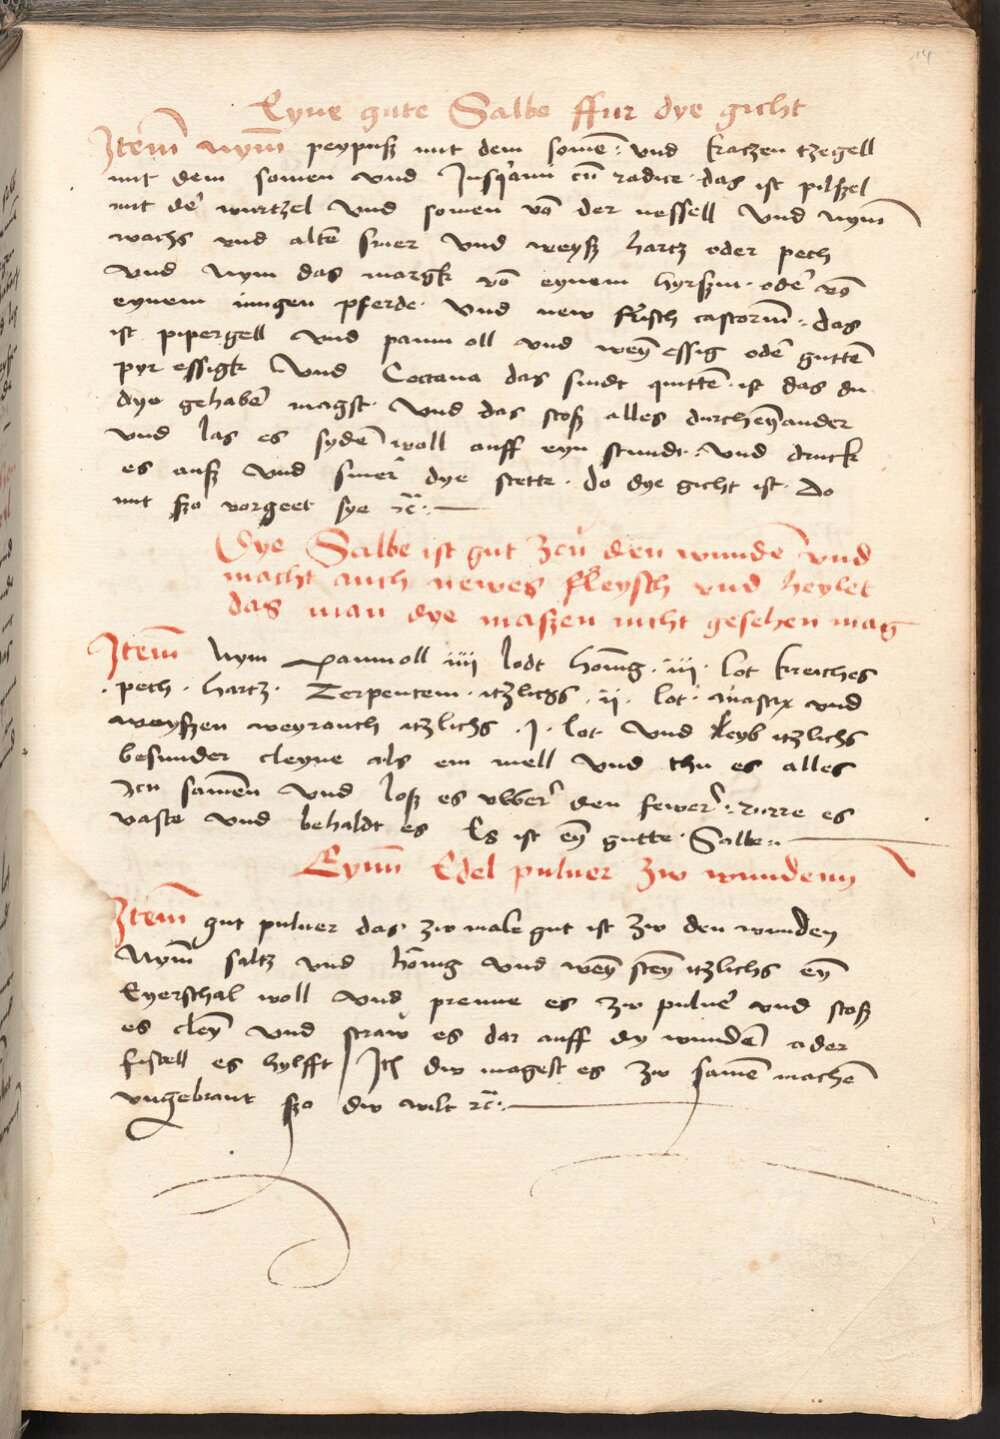 14
Eyne gute Salbe ffur dye gicht
Item nym̄ peypusz mit dem somē: vnd kraczen tzegell
mit dem somen vnd Jusq'ami cū radice · das ist pilszel
mit d' wurtzel vnd somen vō der nessell vnd nym̄
wachs vnd altē smer vnd weysz hartz oder pech
vnd Nym das margk vō eynem hyrszin · od' vō
eynem iungen pferde · vnd new frisch castoriū · das
ist pipergell vnd paum oll vnd weȳ essig od' guttē
pyr essigk vnd Coctana das sindt quittē · ist das du
dye gehabē magst · vnd das stosz alles durcheȳander
vnd las es sydē woll auff eyn stundt · vnd druck
es ausz vnd smer dye stette · do dye gicht ist · do
mit szo vorgeet sye ⁊c̄ ·
Dye Salbe ist gut zcu den wundē vnd
macht auch newes fleysch vnd heylet
das man dye maszen nicht gesehen mag
Item Nym paumoll iiii lodt honig · iii · lot kreichs
· pech · hartz · Terpentem · itzlichs · ii · lot · mastix vnd
weyszen weyrauch itzlichs · J · lot vnd reyb itzlichs
besunder cleyne als ein mell vnd thu es alles
zcu samēn vnd losz es vbber den fewer · rurre es
vaste vnd behaldt es Es ist eȳ gutte · Salbe ·
Eynn Edel puluer zw wundenn
Item gut puluer das zw male gut ist zw den wunden
Nym̄ saltz vnd honig vnd weȳ steȳ itzlichs eȳ
Eyerschal woll vnd prenne es zw puluer vnd stosz
es cleȳ vnd straw es dar auff dy wundē ader
fistell es hylfft / Itē dw magest es zw samē machē
vngebrant szo dw wilt ⁊c̄ ·